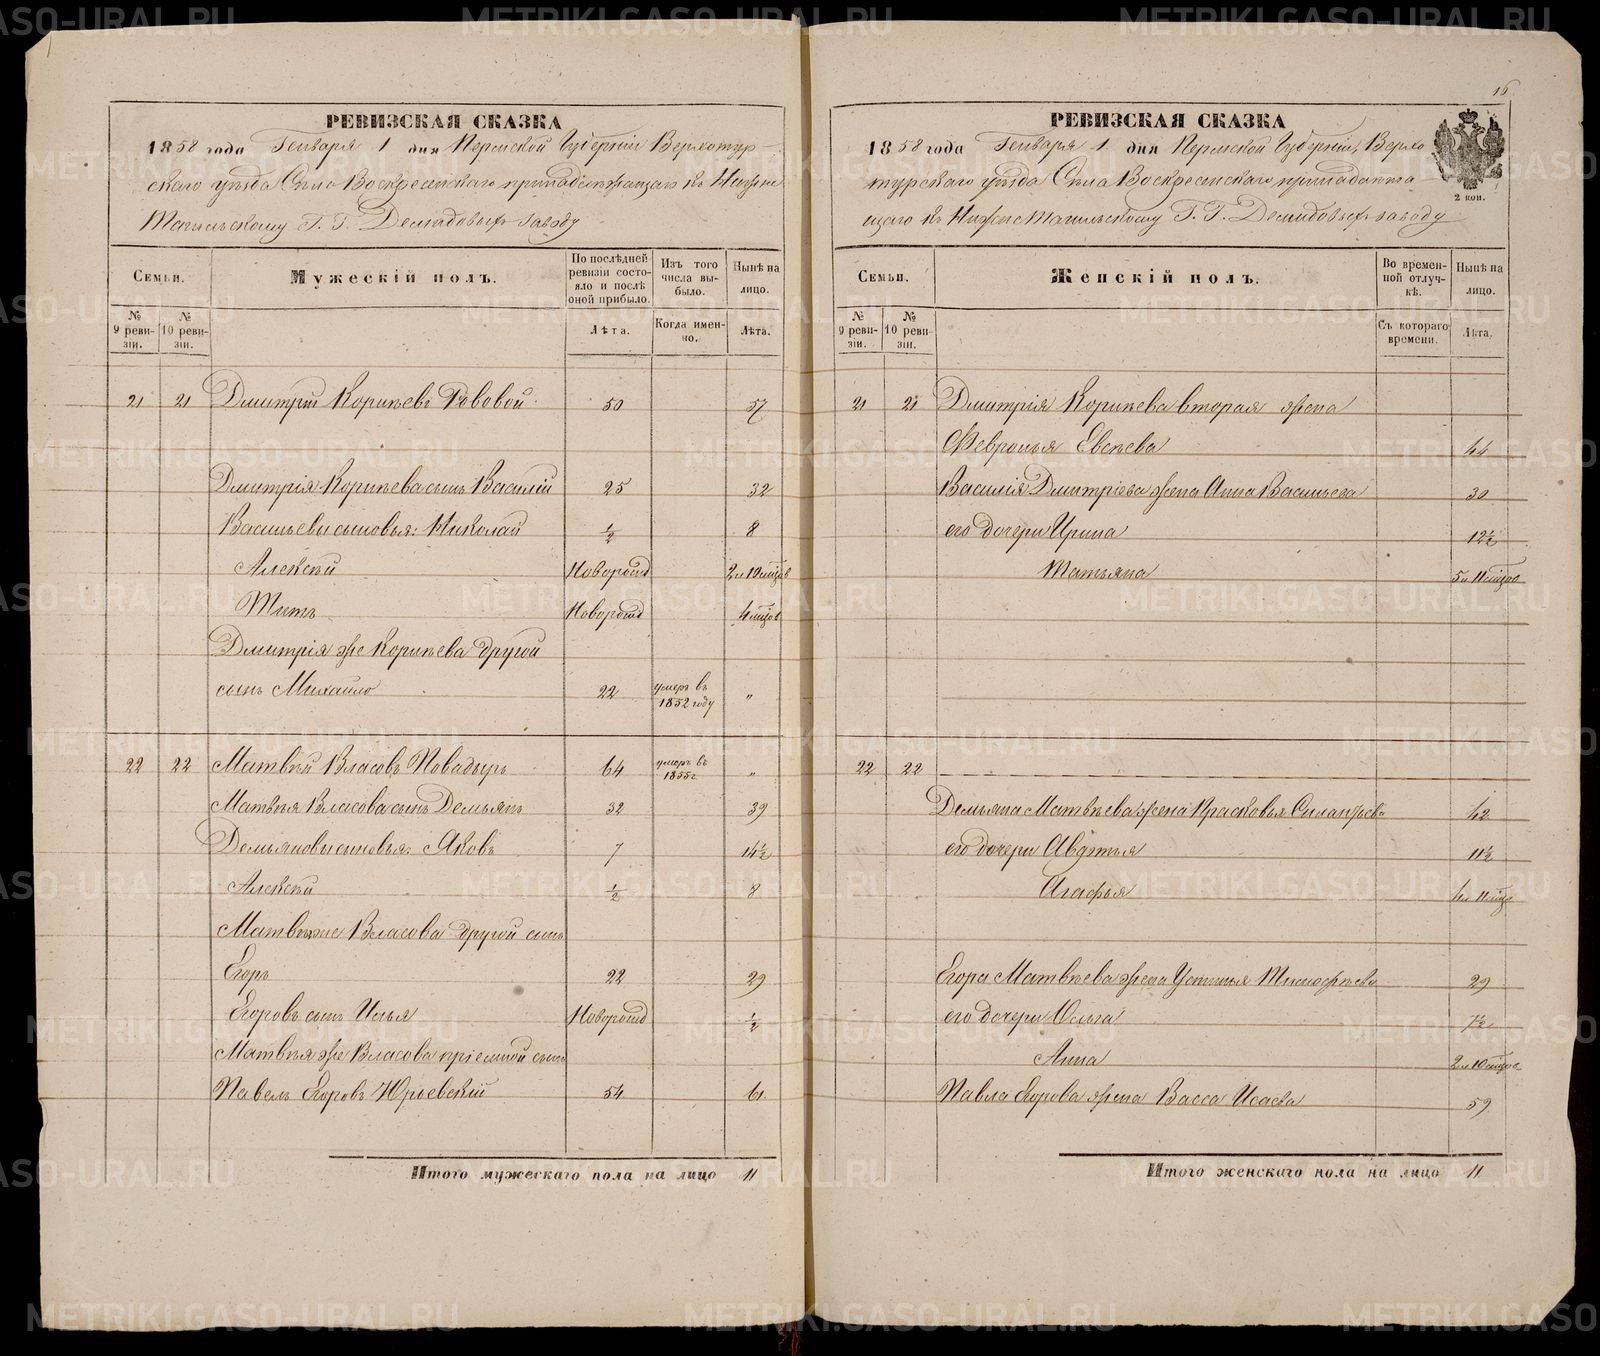 16
РЕВИЗСКАЯ СКАЗКА
1858 года Генваря 1 дня Пермской Губерніи Верхотур-
скаго уезда Села Воскресенскаго принадлежащаго къ Нижне
Тагильскому Г. Г. Демидовыхъ заводу
Семьи.
Мужескій полъ.
По последней ревизіи состояло и после оной прибыло.
Изъ того числа выбыло.
Ныне на лицо.
№ 9 ревизіи.
№ 10 ревизіи.
Лѣта.
Когда именно.
Лѣта.
21 21 Дмитрій Корнѣевъ 50 57
Дмитрія Корнѣева сынъ Василій 25 32
Васильевы сыновья: Николай ½ 8
Алексѣй Новорожд 2 и 10 мѣцов
Титъ Новорожд 4 мѣцов
Дмитрія же Корнѣева другой
сынъ Михайло 22 умеръ въ 1852 году „
22 22 Матвѣй Власовъ Повадырь 64 умеръ въ 1855 г „
Матвѣя Власова сынъ Демьянъ 32 39
Демьяновы сыновья: Яковъ 7 14½
Алексѣй ½ 8
Матвѣя же Власова другой сынъ
Егоръ 22 29
Егоровъ сынъ Илья Новорожд ½
Матвѣя же Власова пріемной сынъ
Павелъ Егоровъ Юрьевскій 54 61
Итого мужескаго пола на лицо 11
РЕВИЗСКАЯ СКАЗКА
1858 года Генваря 1 дня Пермской Губерніи, Верхо
турскаго уѣзда Села Воскресенскаго принадлежа
щаго къ Нижне Тагильскому Г. Г. Демидовыхъ заводу
2 коп.
Семьи.
Женскій полъ.
Во временной отлучкѣ.
Нынѣ на лицо.
№ 9 ревизіи.
№ 10 ревизіи.
Съ котораго времени.
Лѣта.
21 21 Дмитрія Корнѣева вторая жена
Февронья Евсѣева 44
Василія Дмитріева жена Анна Васильева 30
его дочери Ирина 12½
Татьяна 5 и 11 мѣцов
22 22
Демьяна Матвѣева жена Прасковья Силантьева 42
его дочери Авдотья 11½
Агафья 4 и 11 мѣцо
Егора Матвѣева жена Устинья Тимофѣева 29
его дочери Ольга 7½
Анна 2 и 10 мѣцов
Павла Егорова жена Васса Исаева 59
Итого женскаго пола на лицо 11
METRIKI.GASO-URAL.RU